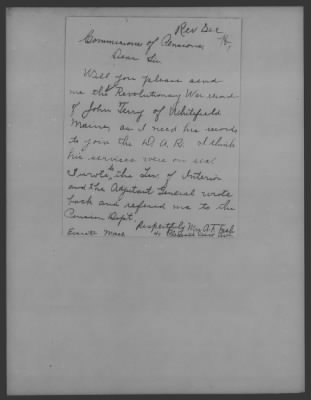 Rev Dec
Commissioner of Pensions,
Dear Sir
Will you please send
me the Revolutionary War
of John Terry of Whitefield
Maine, as I need his records
to join the D. A. R. I think
his services were on sea
I wrote to the Sec. of Interior
and the Adjutant General wrote
back and refered me to the
Pension Dept.
Respectfully Mrs A. F.
41
Everett Mass